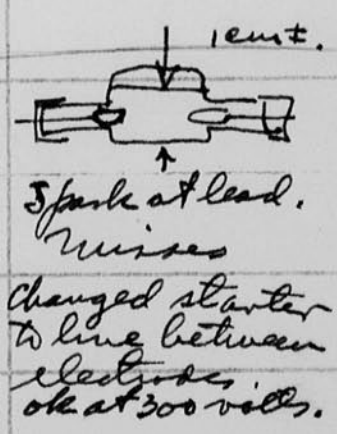 1 cm ±.
Spark at lead.
misses
changed starter
to line between
electrodes.
ok at 300 volts.